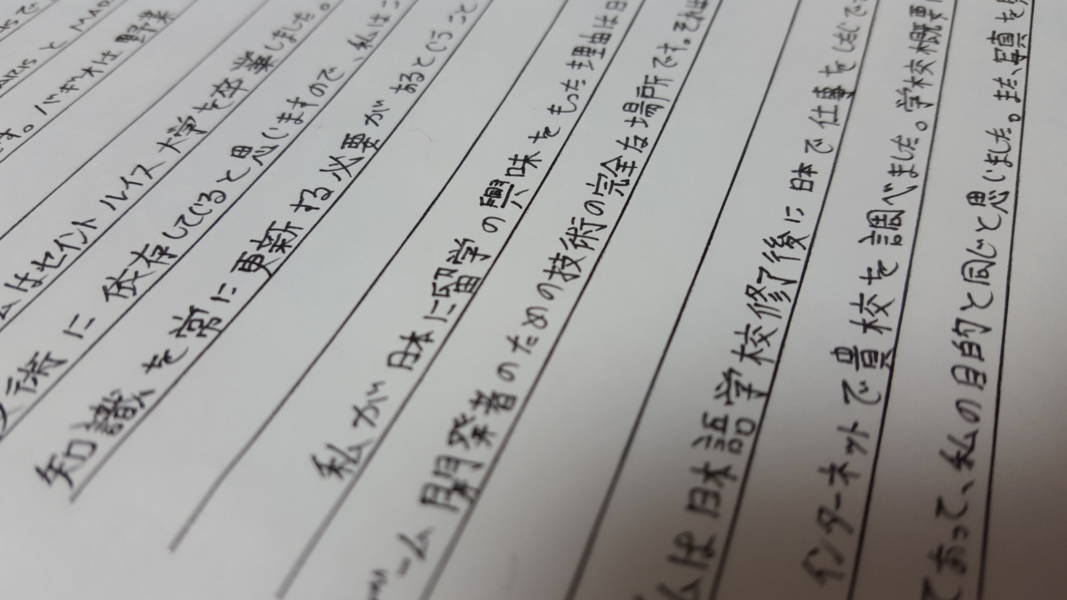 ARIS と MAD
す。バギオは 野菜
はセイントルイス 大学を卒業しました。
術に 依存していると思いますので、私は
知識を常に更新する必要があるということ
私が 日本に留学の興味をもった理由は日
ーム開発者のための技術の完全な場所です。それは
ムは日本語学校修了後に 日本で仕事をし
インターネットで貴校を調べました。学校概要
てあって、私の目的と同じと思いました。また、写真を